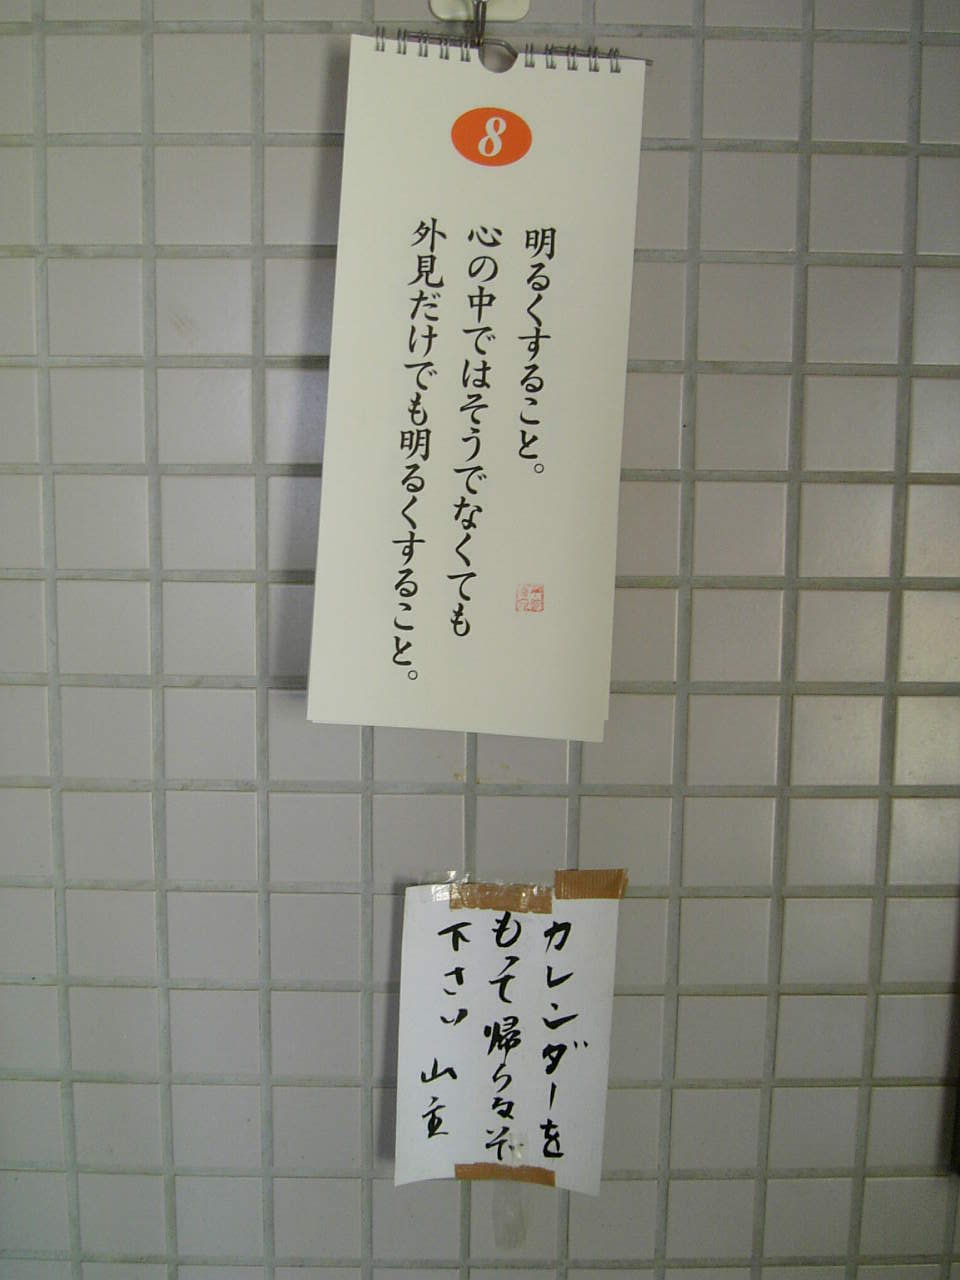 8
明るくすること。
心の中ではそうでなくても
外見だけでも明るくすること。
カレンダーを
もって帰らないで
下さい 山主